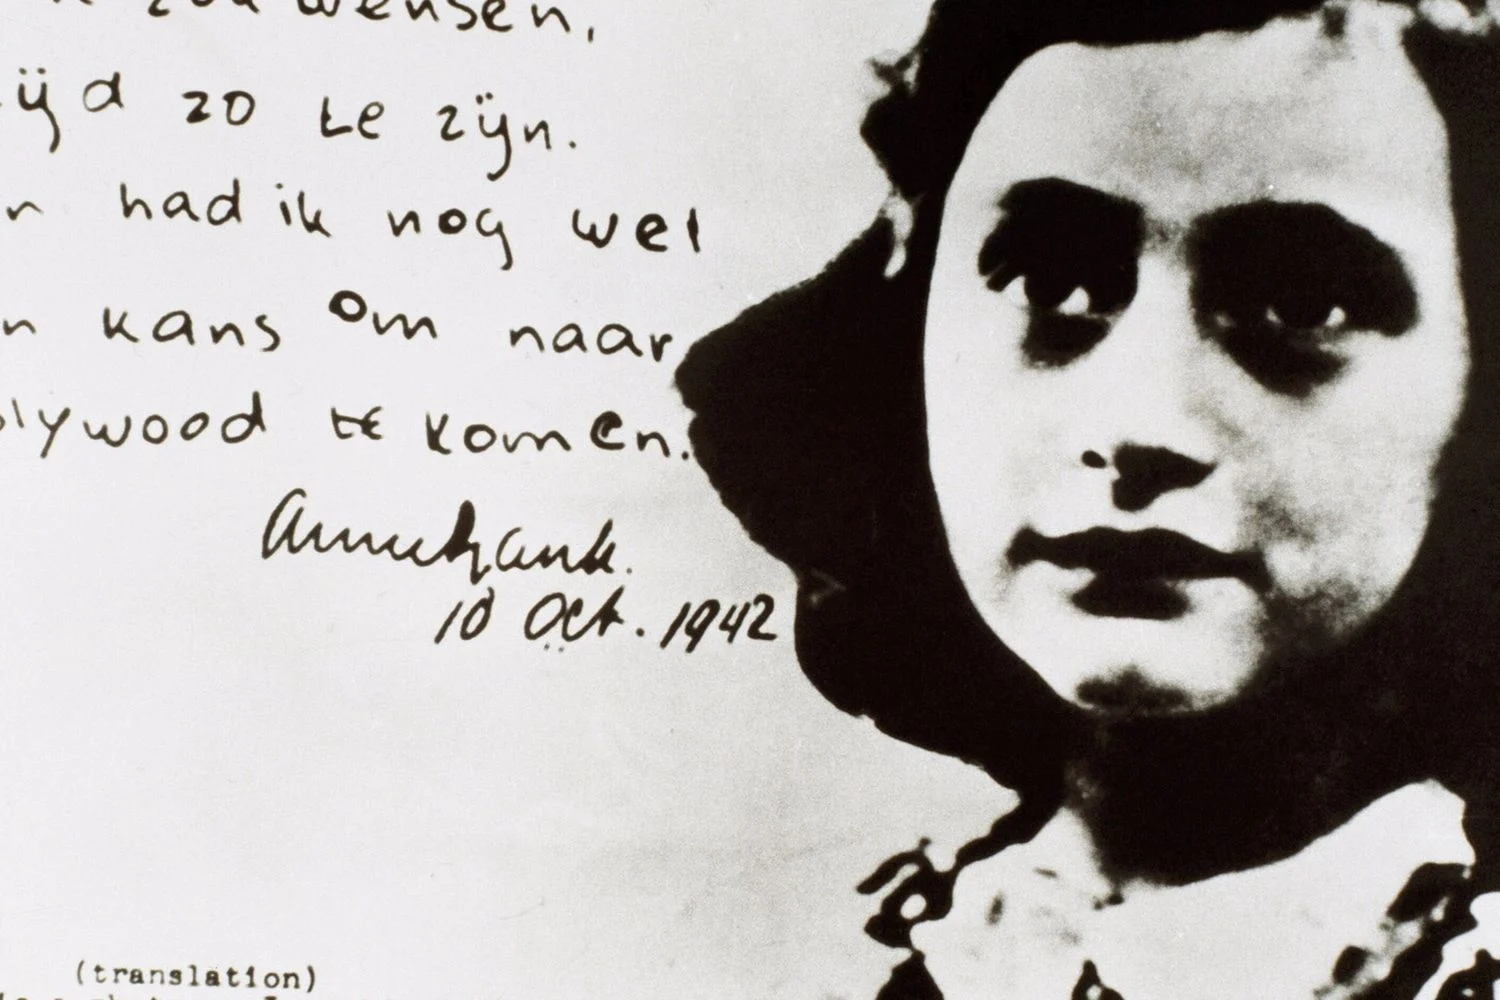 zou wensen,
ijd zo te zijn.
n had ik nog wel
n kans om naar
olywood te komen.
Anne Frank.
10 Oct. 1942
(translation)